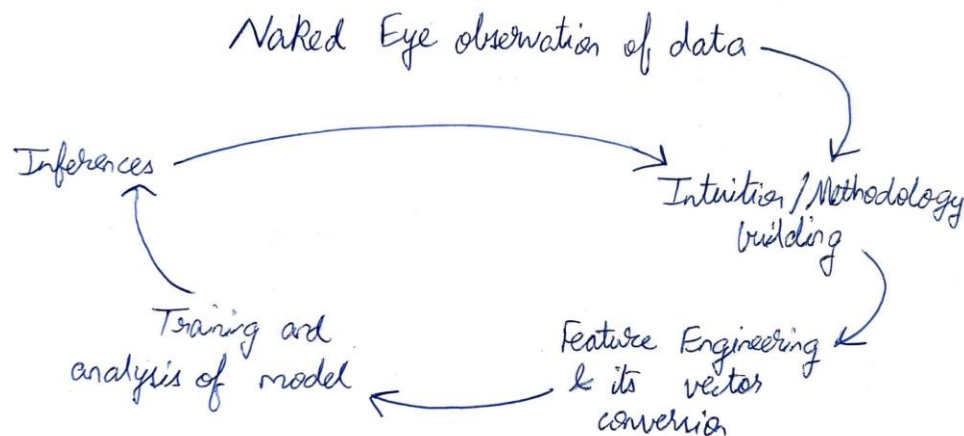 Naked Eye observation of data
Inferences
Intuition/Methodology
building
Feature Engineering
& its vector
conversion
Training and
analysis of model